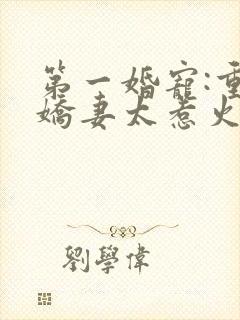 第一婚寵:
嬌妻太惹火
劉學偉